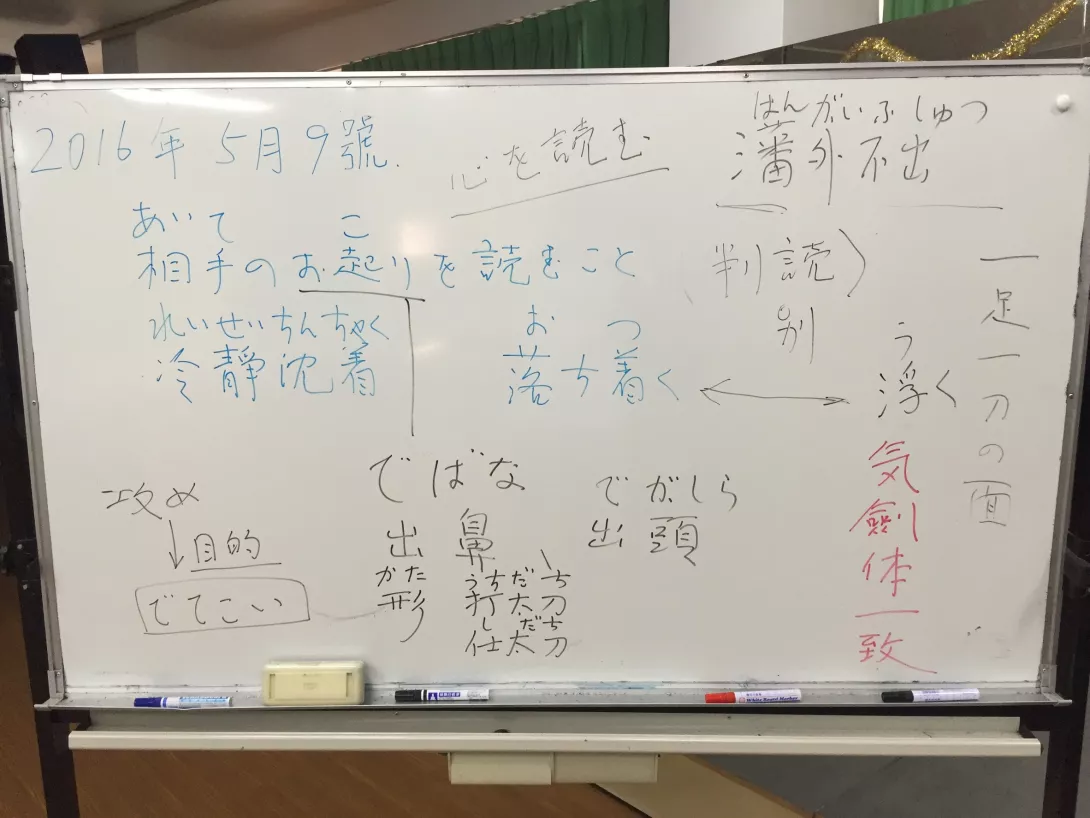 2016年 5月9號.
心を読む
はんがいふしゅつ
藩外不出
あいて こ
相手のお起りを読むこと
判読)
別
れいせいちんちゃく
冷靜沈着
お つ
落ち着く
う
浮く
一足一刀の面
気剣体一致
攻め
目的
でてこい
でばな
出鼻
かた
形
うちだち
打太刀
しだち
仕太刀
でがしら
出頭